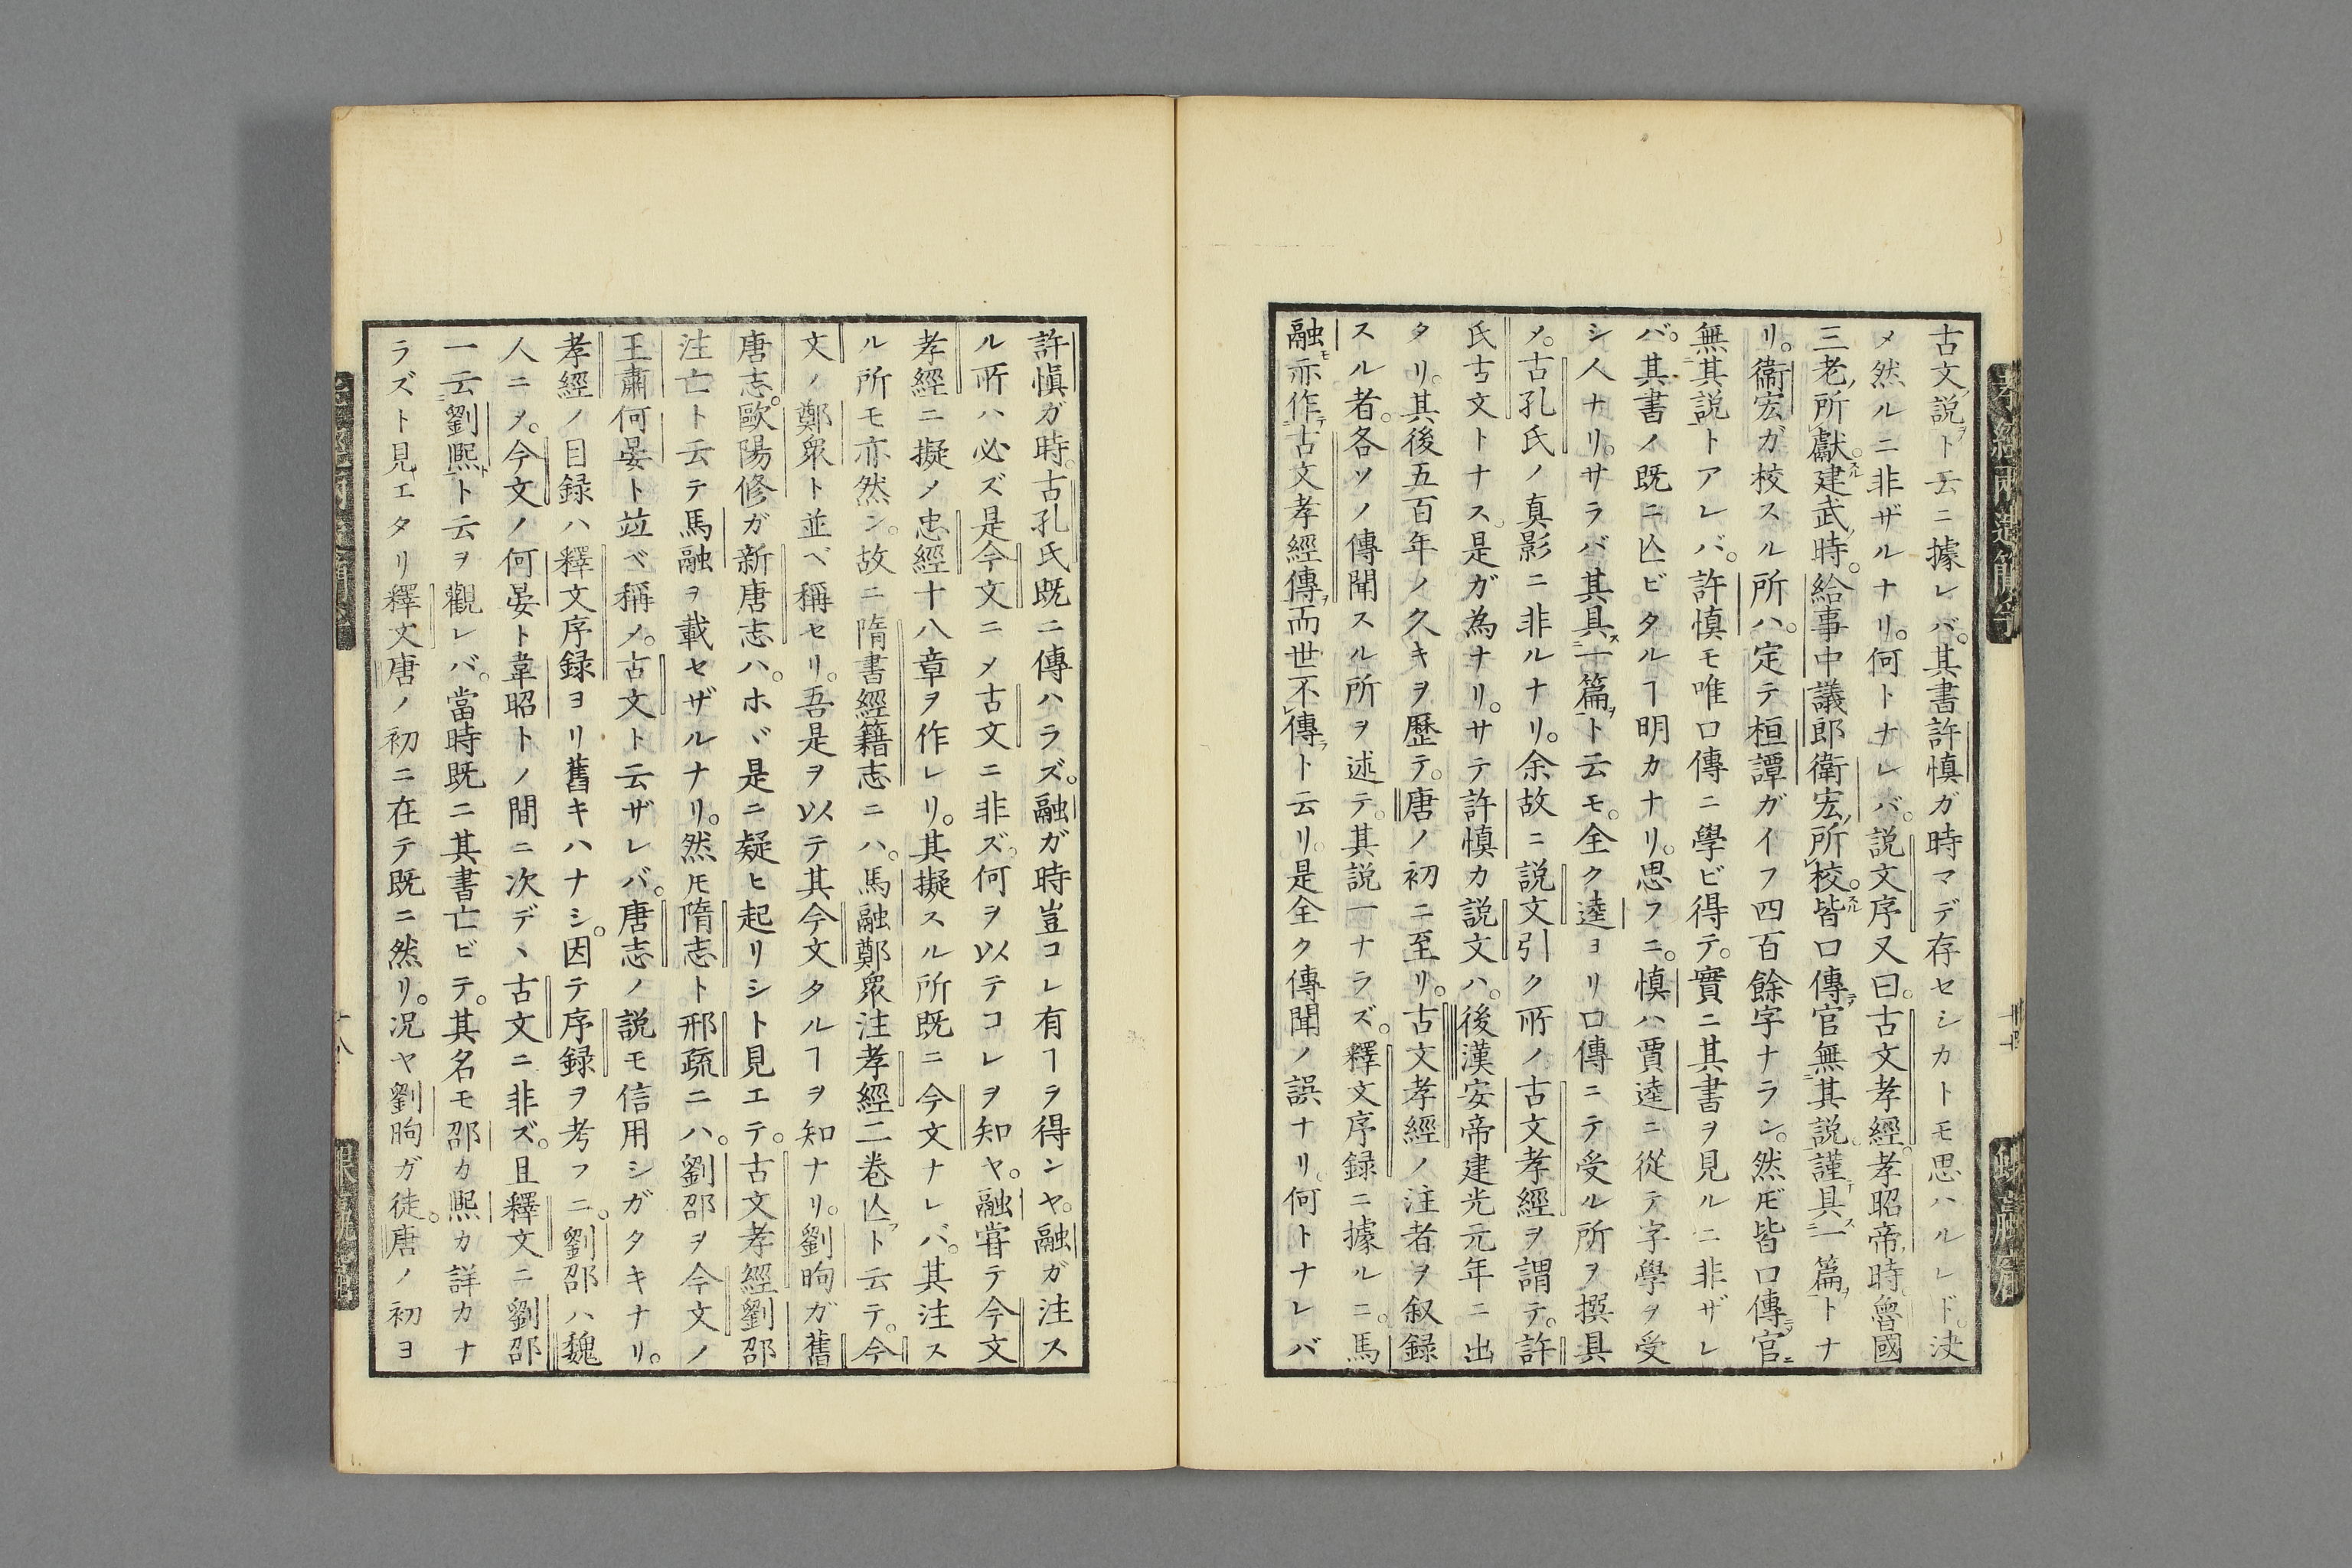 古文説ヲト云ニ據レバ。其書許慎ガ時マデ存セシカトモ思ハルレド。決
メ然ルニ非ザルナリ。何トナレバ。説文序又曰。古文孝經。孝昭帝ノ時。魯國
三老ノ所レ獻スル。建武ノ時。給事中議郎衛宏ノ所レ校スル。皆口傳テ官ニ無二其説一。謹テ具ス二一篇ヲ一トナ
リ。衞宏ガ校スル所ハ。定テ桓譚ガイフ四百餘字ナラン。然ルモ皆口傳ヲ官ニ
無二其説一トアレバ。許慎モ唯口傳ニ學ビ得テ。實ニ其書ヲ見ルニ非ザレ
バ。其書ノ既ニ亾ビタルヿ明カナリ。思フニ。慎ハ賈逵ニ從テ字學ヲ受
シ人ナリ。サラバ其具ス二一篇ヲ一ト云モ。全ク逵ヨリ口傳ニテ受ル所ヲ撰具
メ。古孔氏ノ真影ニ非ルナリ。余故ニ説文引ク所ノ古文孝經ヲ謂テ。許
氏古文トナス。是ガ為ナリ。サテ許慎カ説文ハ。後漢安帝建光元年ニ出
タリ。其後五百年ノ久キヲ歴テ。唐ノ初ニ至リ。古文孝經ノ注者ヲ叙録
スル者。各ソノ傳聞スル所ヲ述テ。其説一ナラズ。釋文序録ニ據ルニ。馬
融モ亦作テ二古文孝經傳ヲ一而世不レ傳ヘラト云リ。是全ク傳聞ノ誤ナリ。何トナレバ
許慎ガ時。古孔氏既ニ傳ハラズ。融ガ時豈コレ有ヿヲ得ンヤ。融ガ注ス
ル所ハ必ズ是今文ニメ古文ニ非ズ。何ヲ以テコレヲ知ヤ。融嘗テ今文
孝經ニ擬メ忠經十八章ヲ作レリ。其擬スル所既ニ今文ナレバ。其注ス
ル所モ亦然ン。故ニ隋書經籍志ニハ。馬融鄭衆注孝經二巻亾フト云テ。今
文ノ鄭衆ト並ベ稱セリ。吾是ヲ以テ其今文タルヿヲ知ナリ。劉昫ガ舊
唐志。歐陽修ガ新唐志ハ。ホヾ是ニ疑ヒ起リシト見エテ。古文孝經劉邵
注亡ト云テ馬融ヲ載セザルナリ。然ルモ隋志ト邢疏ニハ。劉邵ヲ今文ノ
王肅何晏ト竝ベ稱メ。古文ト云ザレバ。唐志ノ説モ信用シガタキナリ。
孝經ノ目録ハ釋文序録ヨリ舊キハナシ。因テ序録ヲ考フニ。劉邵ハ魏
人ニヲ。今文ノ何晏ト韋昭トノ間ニ次デヽ古文ニ非ズ。且釋文ニ劉邵
一云二劉熙ト一ト云ヲ觀レバ。當時既ニ其書亡ビテ。其名モ邵カ熙カ詳カナ
ラズト見エタリ釋文唐ノ初ニ在テ既ニ然リ。况ヤ劉昫ガ徒。唐ノ初ヨ